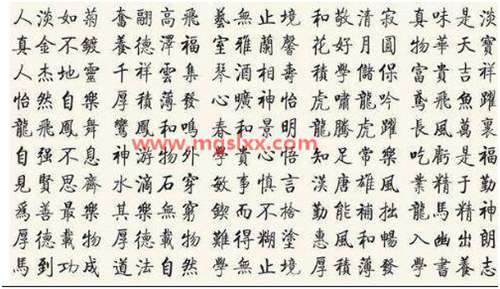 人淡如菊 奮翮高飛 藝無止境 和敬清寂 真味是淡
真金不鍍 養德澤福 室雅蘭馨 花好月圓 物華天寶
人杰地靈 千祥雲集 琴酒相壽 積學儲保 富貴吉祥
怡然自樂 厚積薄發 心曠神怡 虎嘯龍吟 鳶飛魚躍
龍飛鳳舞 鸞鳳和鳴 春和景明 龍騰虎躍 長風萬裏
www.mgslxx.com
自強不息 神游物外 學心悟 知足常樂 吃虧是福
見賢思齊 水滴石穿 敏事慎言 漢唐雄風 業精于勤
爲善最樂 其樂無窮 鍥而不捨 勤能補拙 龍馬精神
厚德載物 厚德載物 難得糊塗 惠風和暢 入幽出朗
馬到功成 道法自然 學無止境 厚積薄發 學書養志